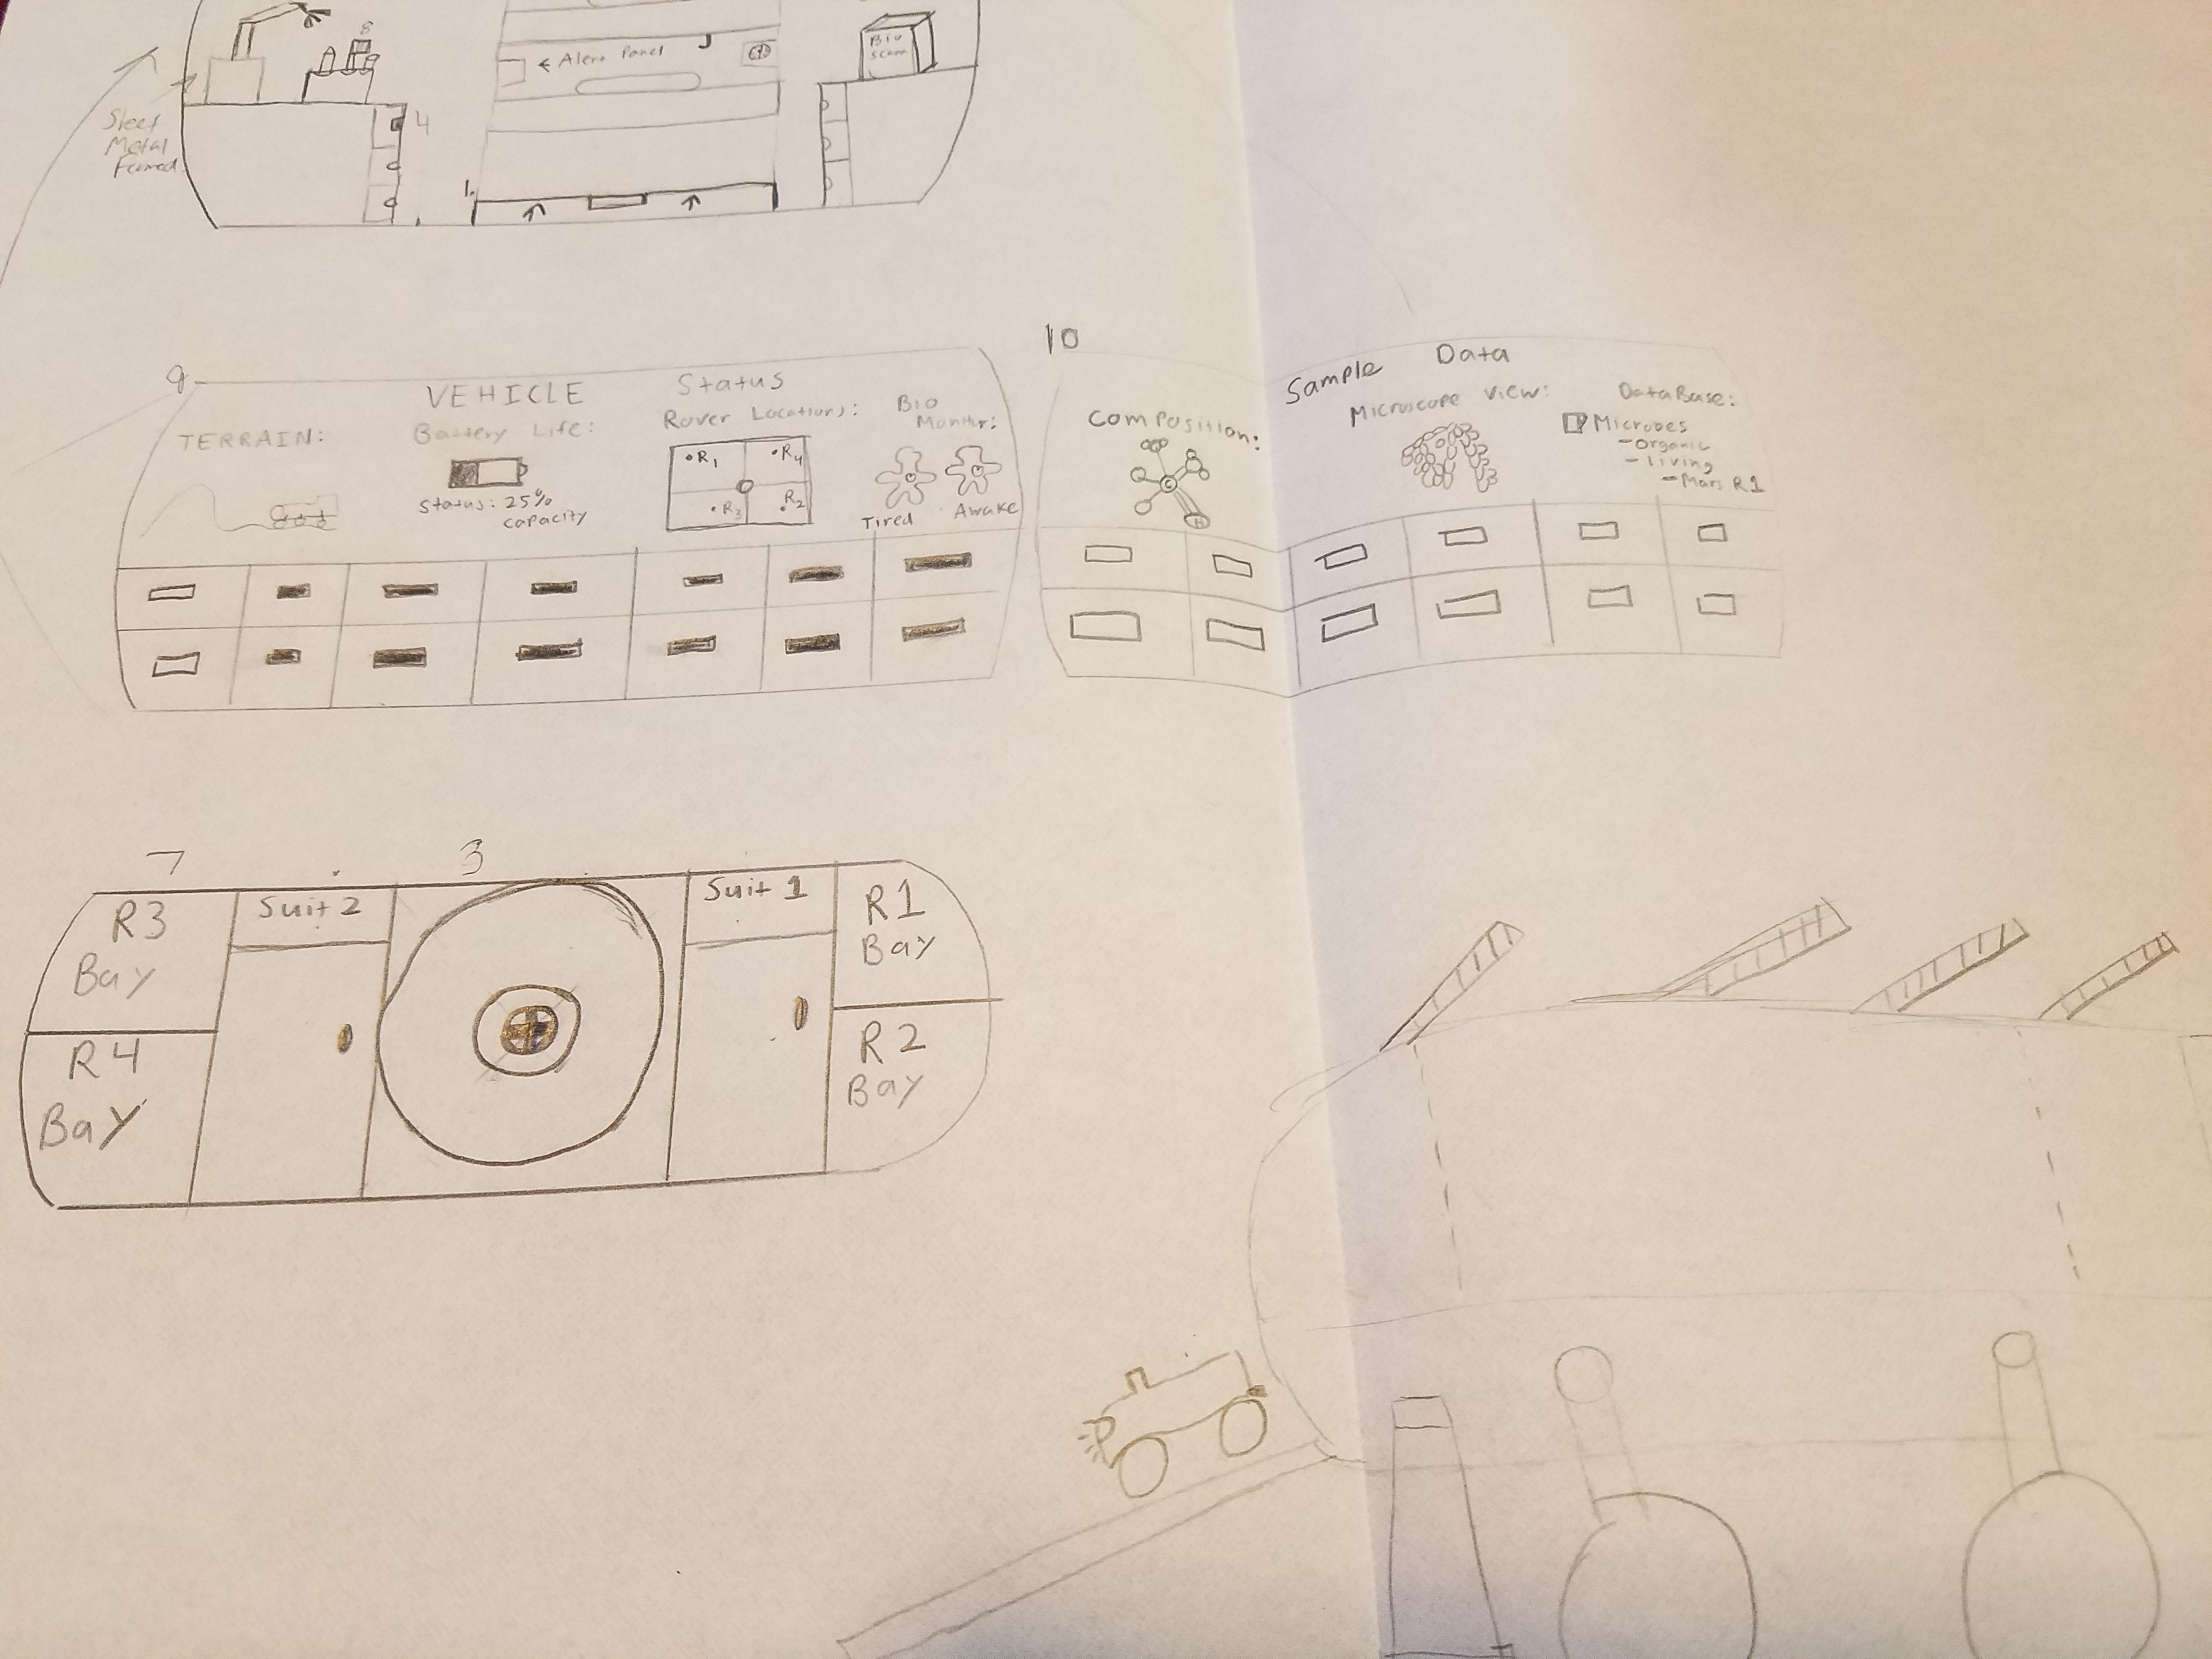 8
Bio
Scan
← Alert Panel
Sheet
Metal
Formed
4
1.
9
VEHICLE Status
TERRAIN:
Battery Life:
Status: 25%
capacity
Rover Locations:
R1
R4
R3
R2
Bio
Monitor:
Tired Awake
10
Sample Data
Composition:
C
H
Microscope View:
DataBase:
Microbes
-Organic
-Living
-Mars R1
7
3
R3
Bay
R4
Bay
Suit 2
Suit 1
R1
Bay
R2
Bay